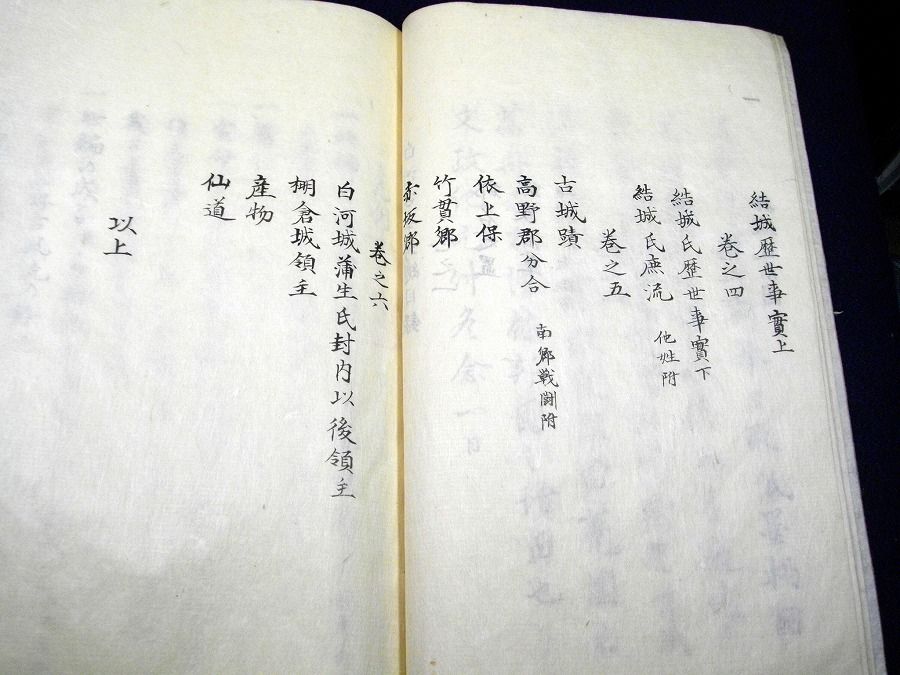 結城歴世事實上
巻之四
結城氏歴世事實下
結城氏庶流 他姓附
巻之五
古城蹟
高野郡分合 南郷戦闘附
依上保
竹貫郷
赤坂郷
巻之六
白河城蒲生氏封内以後領主
棚倉城領主
産物
仙道
以上